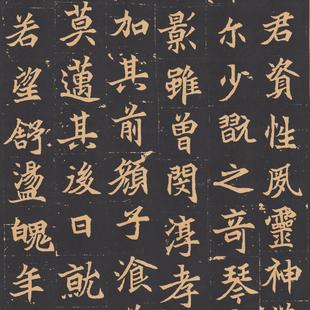 君資性夙靈神
尓少翫之竒琴
影雖曾閔淳孝
加其前顏子飡
莫邁其後日就
若望舒盪魄年